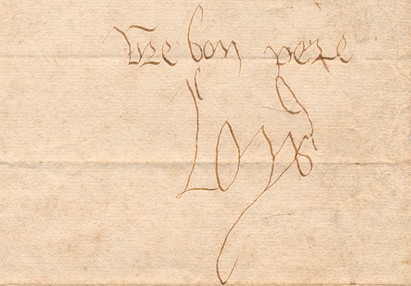 Vre bon pere
Loys